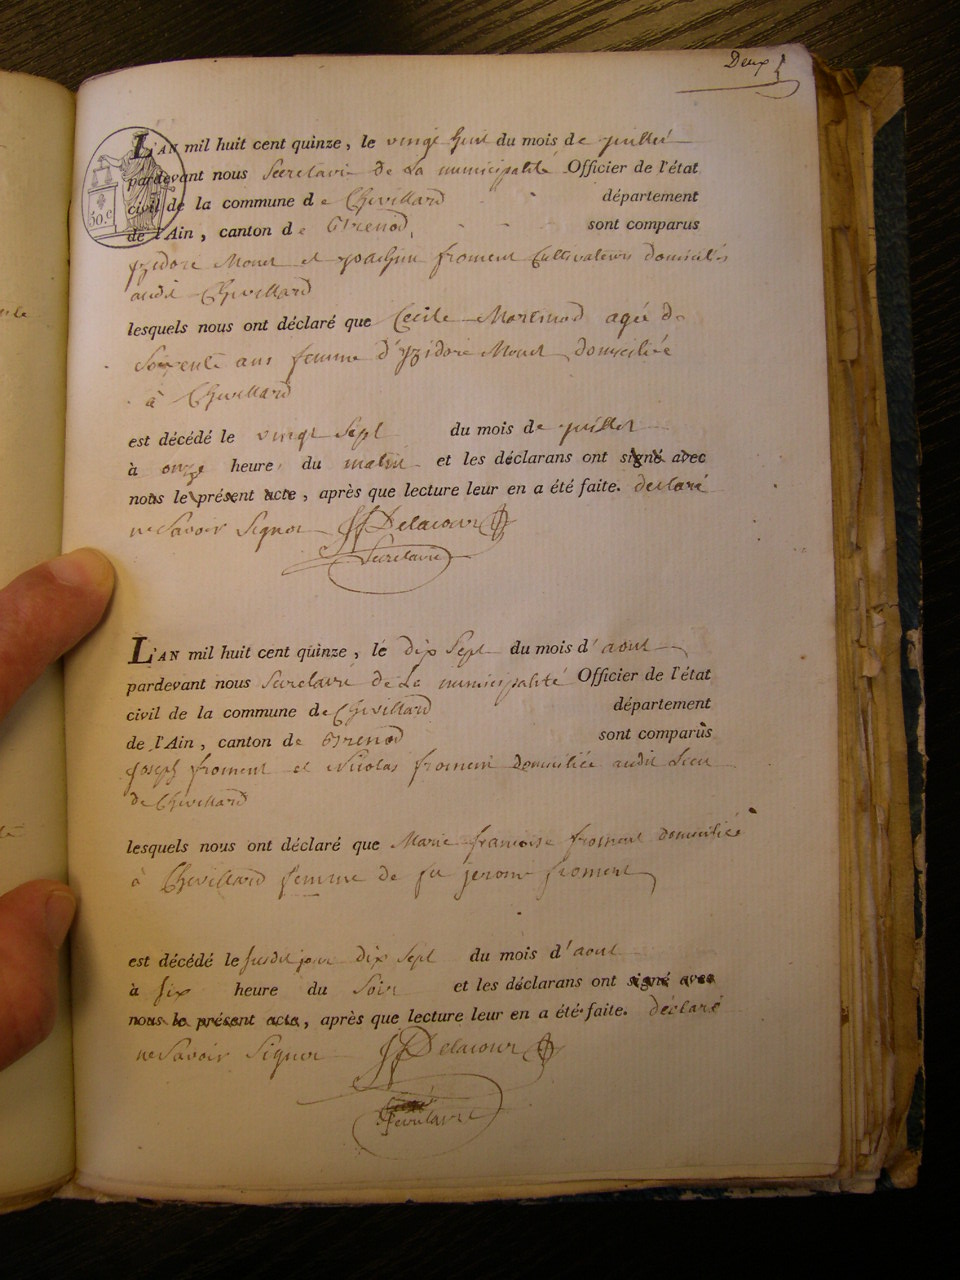 Deux
L'AN mil huit cent quinze, le vingt huit du mois de juillet
pardevant nous Secretaire De La municipalité Officier de l'état
civil de la commune de Chevillard département
de l'Ain, canton de Brenod, sont comparus
Yzidore Monet et Joachim froment Cultivateurs domiciliés
audit Chevillard
lesquels nous ont déclaré que Cecile Martinod agée de
Soixente ans femme d'Yzidore Monet domiciliée
à Chevillard
est décédé le vingt Sept du mois de juillet
à onze heure du matin et les déclarans ont signé avec
nous le présent acte, après que lecture leur en a été faite. declaré
ne Savoir Signer Delacour
Secretaire
50.c
L'AN mil huit cent quinze, lé dix Sept du mois d'aout
pardevant nous Secretaire De La municipalité Officier de l'état
civil de la commune de Chevillard département
de l'Ain, canton de Brenod sont comparus
Joseph froment et Nicolas froment domiciliée audit Lieu
de Chevillard
lesquels nous ont déclaré que Marie françoise froment domiciliée
à Chevillard femme de fu jerome froment
est décédé le susdit jour dix Sept du mois d'aout
à six heure du Soir et les déclarans ont signé avec
nous le présent acte, après que lecture leur en a été faite. déclaré
ne Savoir Signer Delacour
Secretaire